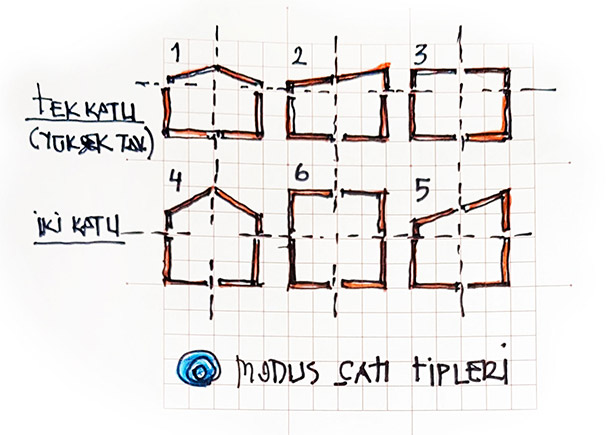 1 2 3
TEK KATLI
(YÜKSEK TAV.)
4 6 5
İKİ KATLI
MODUS ÇATI TİPLERİ